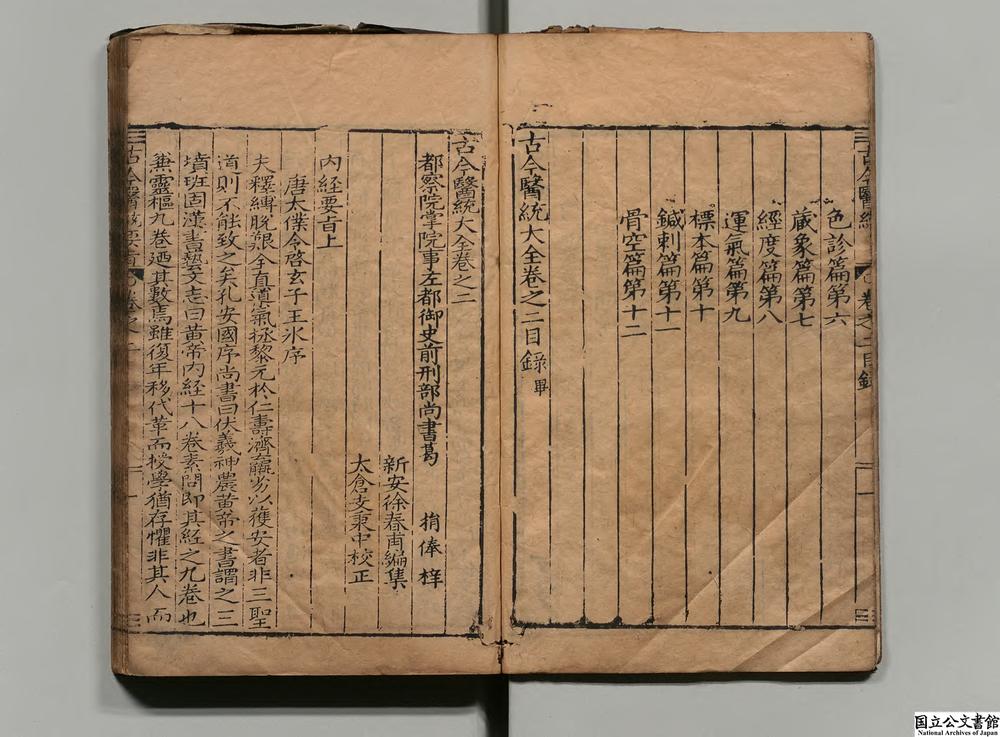 古今醫統 卷之二目錄
色診篇第六
藏象篇第七
經度篇第八
運氣篇第九
標本篇第十
鍼刺篇第十一
骨空篇第十二
古今醫統大全卷之二目錄 畢
古今醫統大全卷之二
都察院掌院事左都御史前刑部尚書葛 捐俸梓
新安徐春甫編集
太倉支秉中校正
内經要旨上
唐太僕令啓玄子王氷序
夫釋縛脫艱全眞導氣拯黎元於仁壽濟羸劣以獲安者非三聖
道則不能致之矣孔安國序尚書曰伏羲神農黃帝之書謂之三
墳班固漢書藝文志曰黃帝内經十八卷素問即其經之九卷也
兼靈樞九卷廼其數焉雖復年移代革而授學猶存懼非其人而
古今醫統 卷之二 一
国立公文書館
National Archives of Japan